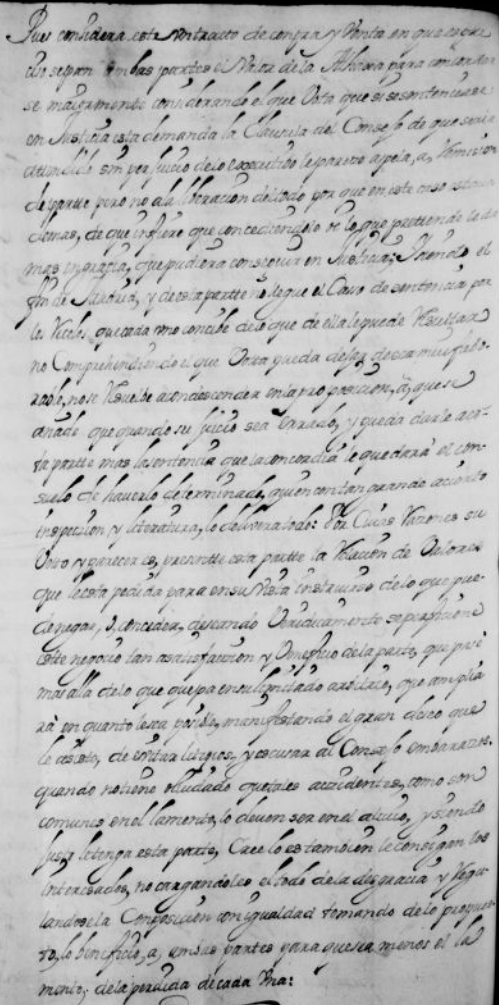 Pues considera este Contracto de compra y Venta en que es pre
ciso sepan ambas partes el Valor de la Alhaja para concordar
se mayormente considerando el que Vota que si se sentenciase
en Justicia esta demanda la Clausula del Consejo de que seria
attendido sin perjuicio de lo expecttido le parece apela, a, Remission
de parte pero no a la liberacion del todo por que en este caso estava
demas, de que infiere que concediendole se lo que pretiende se da
mas en gracia, que pudiera conseguir en Justicia;
fin de Madrid, y de esta partte no llegue el Caso de sentencia por
los que cada uno concibe de lo que de ella le puede Resultar
no Comprehendiendo el que Vota pueda dejar de ser muy fabo-
rable, no se Resuelbe a condescender en la proposicion, a, que se
añade que quando su juicio sea Errado, y pueda darle a es-
ta partte mas la sentencia que la concordia le quedará el con-
suelo de haverlo determinado, quien con tan grande acierto
inspeccion y literatura, lo delivera todo: Por Cuias Razones su
Votto y parecer es, presentte esta partte la Relacion de Valores
que le esta pedida para en su Vista instruirse de lo que pue-
de negar, o, conceder, deseando Unicamente se perficione
este negocio tan a satisfaccion y Veneficio de la parte, que pase
mas alla de lo que quepa en su limitado arbitrio, que amplia
rá en quanto le sea posible, manifestando el gran deseo que
le asiste, de evitar litigios, y escusar al Consejo embarazos,
quando no tiene olvidado que tales accidentes, como son
comunes en el lamento, lo deven ser en el alivio, y siendo
justo le tenga esta parte, Cree lo es tambien le consigan los
interesados, no cargandoles el todo de la desgracia y Regu-
landose la Composicion con igualdad tomando de lo propues-
to, lo beneficio, a, ambas partes para que sea menos el la
mento, de la perdida de cada Una: